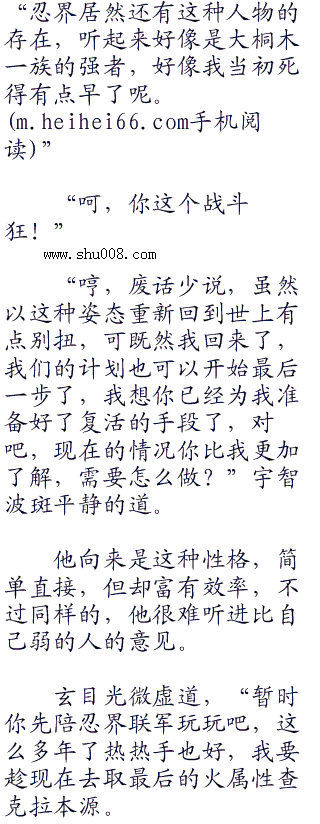 “忍界居然还有这种人物的
存在，听起来好像是大桐木
一族的强者，好像我当初死
得有点早了呢。
(m.heihei66.com手机阅
读)”
“呵，你这个战斗
狂！”
www.shu008.com
“哼，废话少说，虽然
以这种姿态重新回到世上有
点别扭，可既然我回来了，
我们的计划也可以开始最后
一步了，我想你已经为我准
备好了复活的手段了，对
吧，现在的情况你比我更加
了解，需要怎么做？”宇智
波斑平静的道。
他向来是这种性格，简
单直接，但却富有效率，不
过同样的，他很难听进比自
己弱的人的意见。
玄目光微虚道，“暂时
你先陪忍界联军玩玩吧，这
么多年了热热手也好，我要
趁现在去取最后的火属性查
克拉本源。